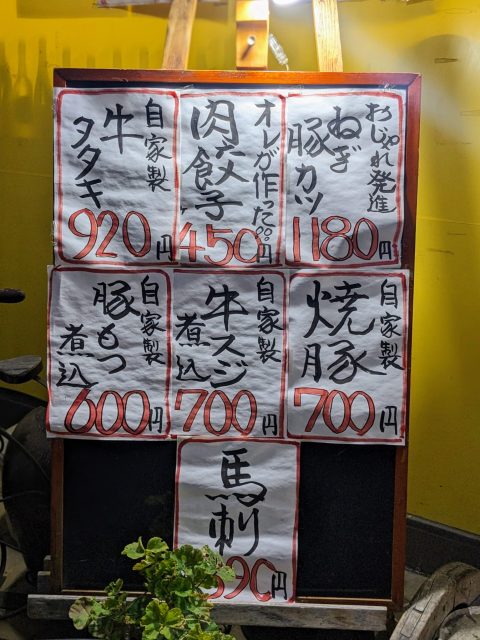 おじゃれ発進
ねぎ
豚カツ
1180円
オレが作った。。
肉餃子
450円
自家製
牛
タタキ
920円
自家製
焼豚
700円
自家製
牛スジ
煮込
700円
自家製
豚もつ
煮込
600円
馬刺